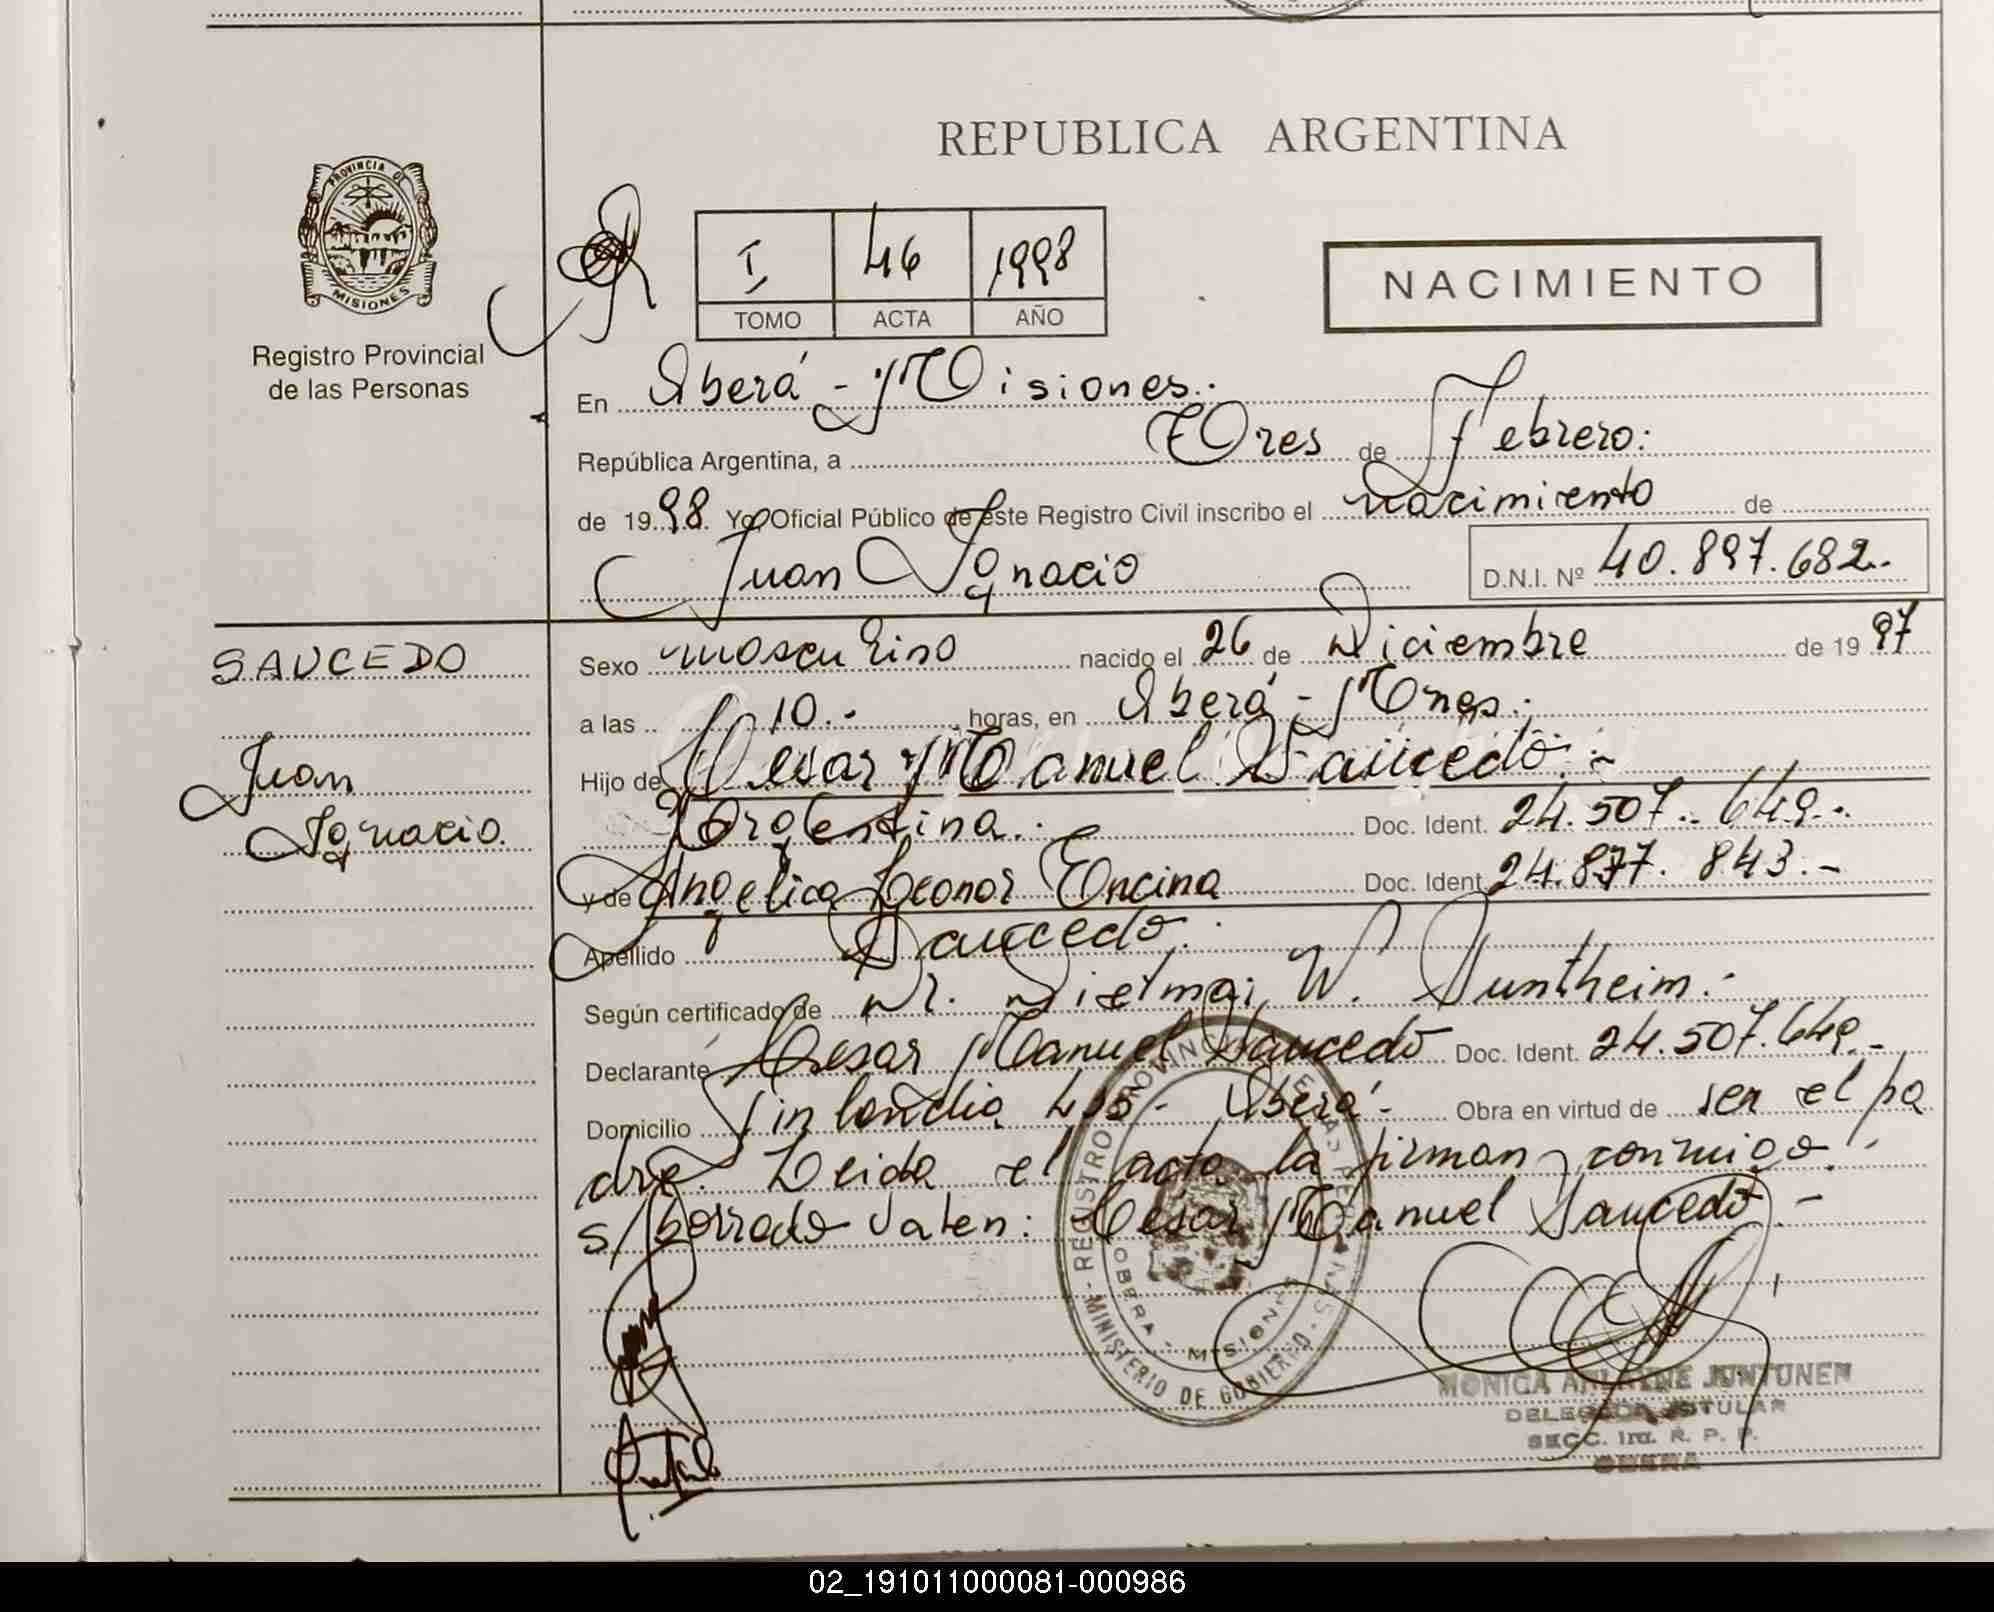 REPUBLICA ARGENTINA
PROVINCIA DE
MISIONES
Registro Provincial
de las Personas
I 46 1998
TOMO ACTA AÑO
NACIMIENTO
En Oberá - Misiones.
República Argentina, a Tres de Febrero:
de 1998. Yo, Oficial Público de este Registro Civil inscribo el nacimiento de
Juan Ignacio D.N.I. Nº 40.897.682.
SAUCEDO
Juan
Ignacio.
Sexo masculino nacido el 26 de Diciembre de 1997
a las 10.- horas, en Oberá - Mnes.
Hijo de César Manuel Saucedo. -
Argentina. Doc. Ident. 24.507.649.-
y de Angélica Leonor Encina Doc. Ident. 24.877.843.-
Apellido Saucedo.
Según certificado de Dr. Dietmar W. Juntheim.-
Declarante César Manuel Saucedo Doc. Ident. 24.507.649.-
Domicilio Finlandia Oberá - Obra en virtud de ser el pa
dre. Leida el acta la firman conmigo.-
s/borrado valen: César Manuel Saucedo. -
REGISTRO PROVINCIAL DE LAS PERSONAS
OBERA - MISIONES
MINISTERIO DE GOBIERNO
MONICA JUNTUNEN
DELEGADA TITULAR
SECC. 1ra. R. P. P.
OBERA
02_191011000081-000986